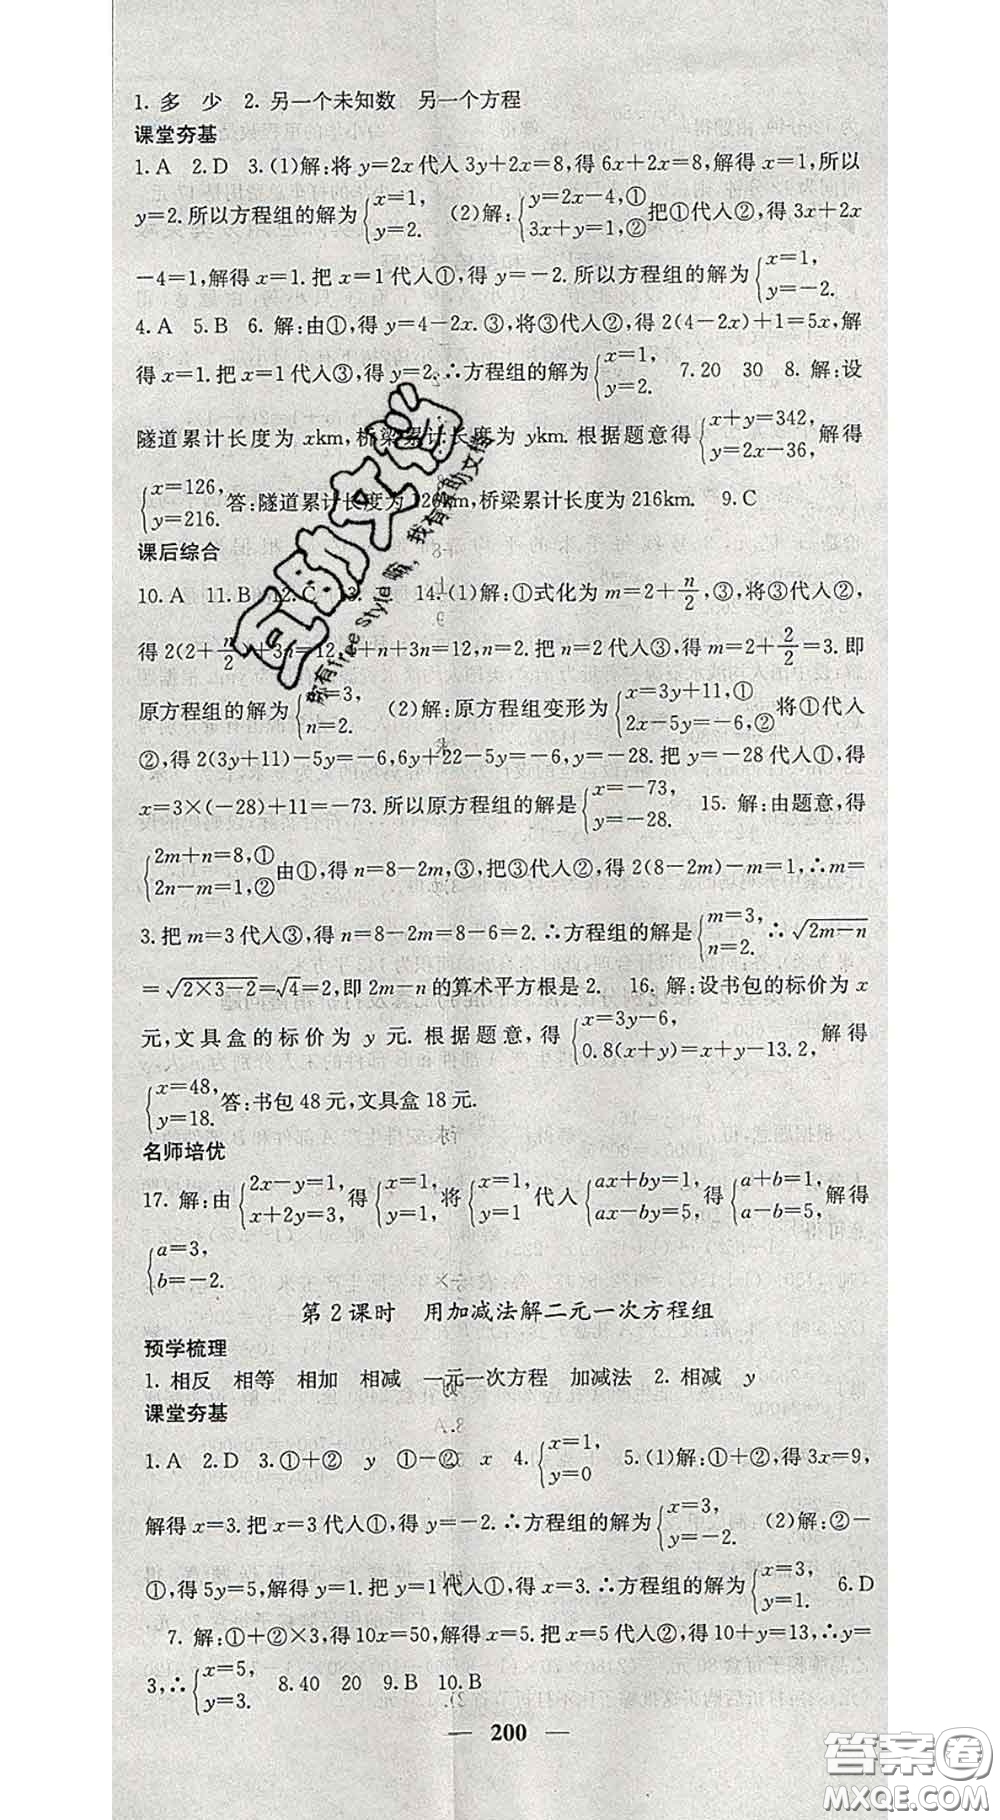 1. 多　少　2. 另一个未知数　另一个方程
课堂夯基
1. A　2. D　3. (1)解:将 y=2x 代人 3y+2x=8,得 6x+2x=8,解得 x=1,所以
y=2. 所以方程组的解为{x=1, y=2.　(2)解:{y=2x−4,① 3x+y=1,② 把①代人②,得 3x+2x
−4=1,解得 x=1. 把 x=1 代人①,得 y=−2. 所以方程组的解为{x=1, y=−2.
4. A　5. B　6. 解:由①,得 y=4−2x. ③,将③代人②,得 2(4−2x)+1=5x,解
得 x=1. 把 x=1 代人③,得 y=2. ∴方程组的解为{x=1, y=2.　7. 20　30　8. 解:设
隧道累计长度为 xkm,桥梁累计长度为 ykm. 根据题意得{x+y=342, y=2x−36,解得
{x=126, y=216. 答:隧道累计长度为 126km,桥梁累计长度为 216km.　9. C
课后综合
10. A　11. B　12. C　13.　14. (1)解:①式化为 m=2+n/2,③,将③代人②,
得 2(2+n/2)+3n=12,4+n+3n=12,n=2. 把 n=2 代人③,得 m=2+2/2=3. 即
原方程组的解为{m=3, n=2.　(2)解:原方程组变形为{x=3y+11,① 2x−5y=−6,② 将①代人
②,得 2(3y+11)−5y=−6,6y+22−5y=−6,y=−28. 把 y=−28 代人①,得
x=3×(−28)+11=−73. 所以原方程组的解是{x=−73, y=−28.　15. 解:由题意,得
{2m+n=8,① 2n−m=1,② 由①,得 n=8−2m,③,把③代人②,得 2(8−2m)−m=1,∴m=
3. 把 m=3 代人③,得 n=8−2m=8−6=2. ∴方程组的解是{m=3, n=2. ∴√(2m−n)
=√(2×3−2)=√4=2,即 2m−n 的算术平方根是 2.　16. 解:设书包的标价为 x
元,文具盒的标价为 y 元. 根据题意,得{x=3y−6, 0.8(x+y)=x+y−13.2,解得
{x=48, y=18. 答:书包 48 元,文具盒 18 元.
名师培优
17. 解:由{2x−y=1, x+2y=3,得{x=1, y=1,将{x=1, y=1 代人{ax+by=1, ax−by=5,得{a+b=1, a−b=5,解得
{a=3, b=−2.
第 2 课时　用加减法解二元一次方程组
预学梳理
1. 相反　相等　相加　相减　一元一次方程　加减法　2. 相减　y
课堂夯基
1. A　2. D　3. ①+②　y　①−②　x　4. {x=1, y=0　5. (1)解:①+②,得 3x=9,
解得 x=3. 把 x=3 代人①,得 y=−2. ∴方程组的解为{x=3, y=−2.　(2)解:②−
①,得 5y=5,解得 y=1. 把 y=1 代人①,得 x=3. ∴方程组的解为{x=3, y=1.　6. D
7. 解:①+②×3,得 10x=50,解得 x=5. 把 x=5 代人②,得 10+y=13,∴y=
3,∴{x=5, y=3.　8. 40　20　9. B　10. B
— 200 —
互助文档
你有free style嘛，我有互助文档
答案圈
MXQE.COM